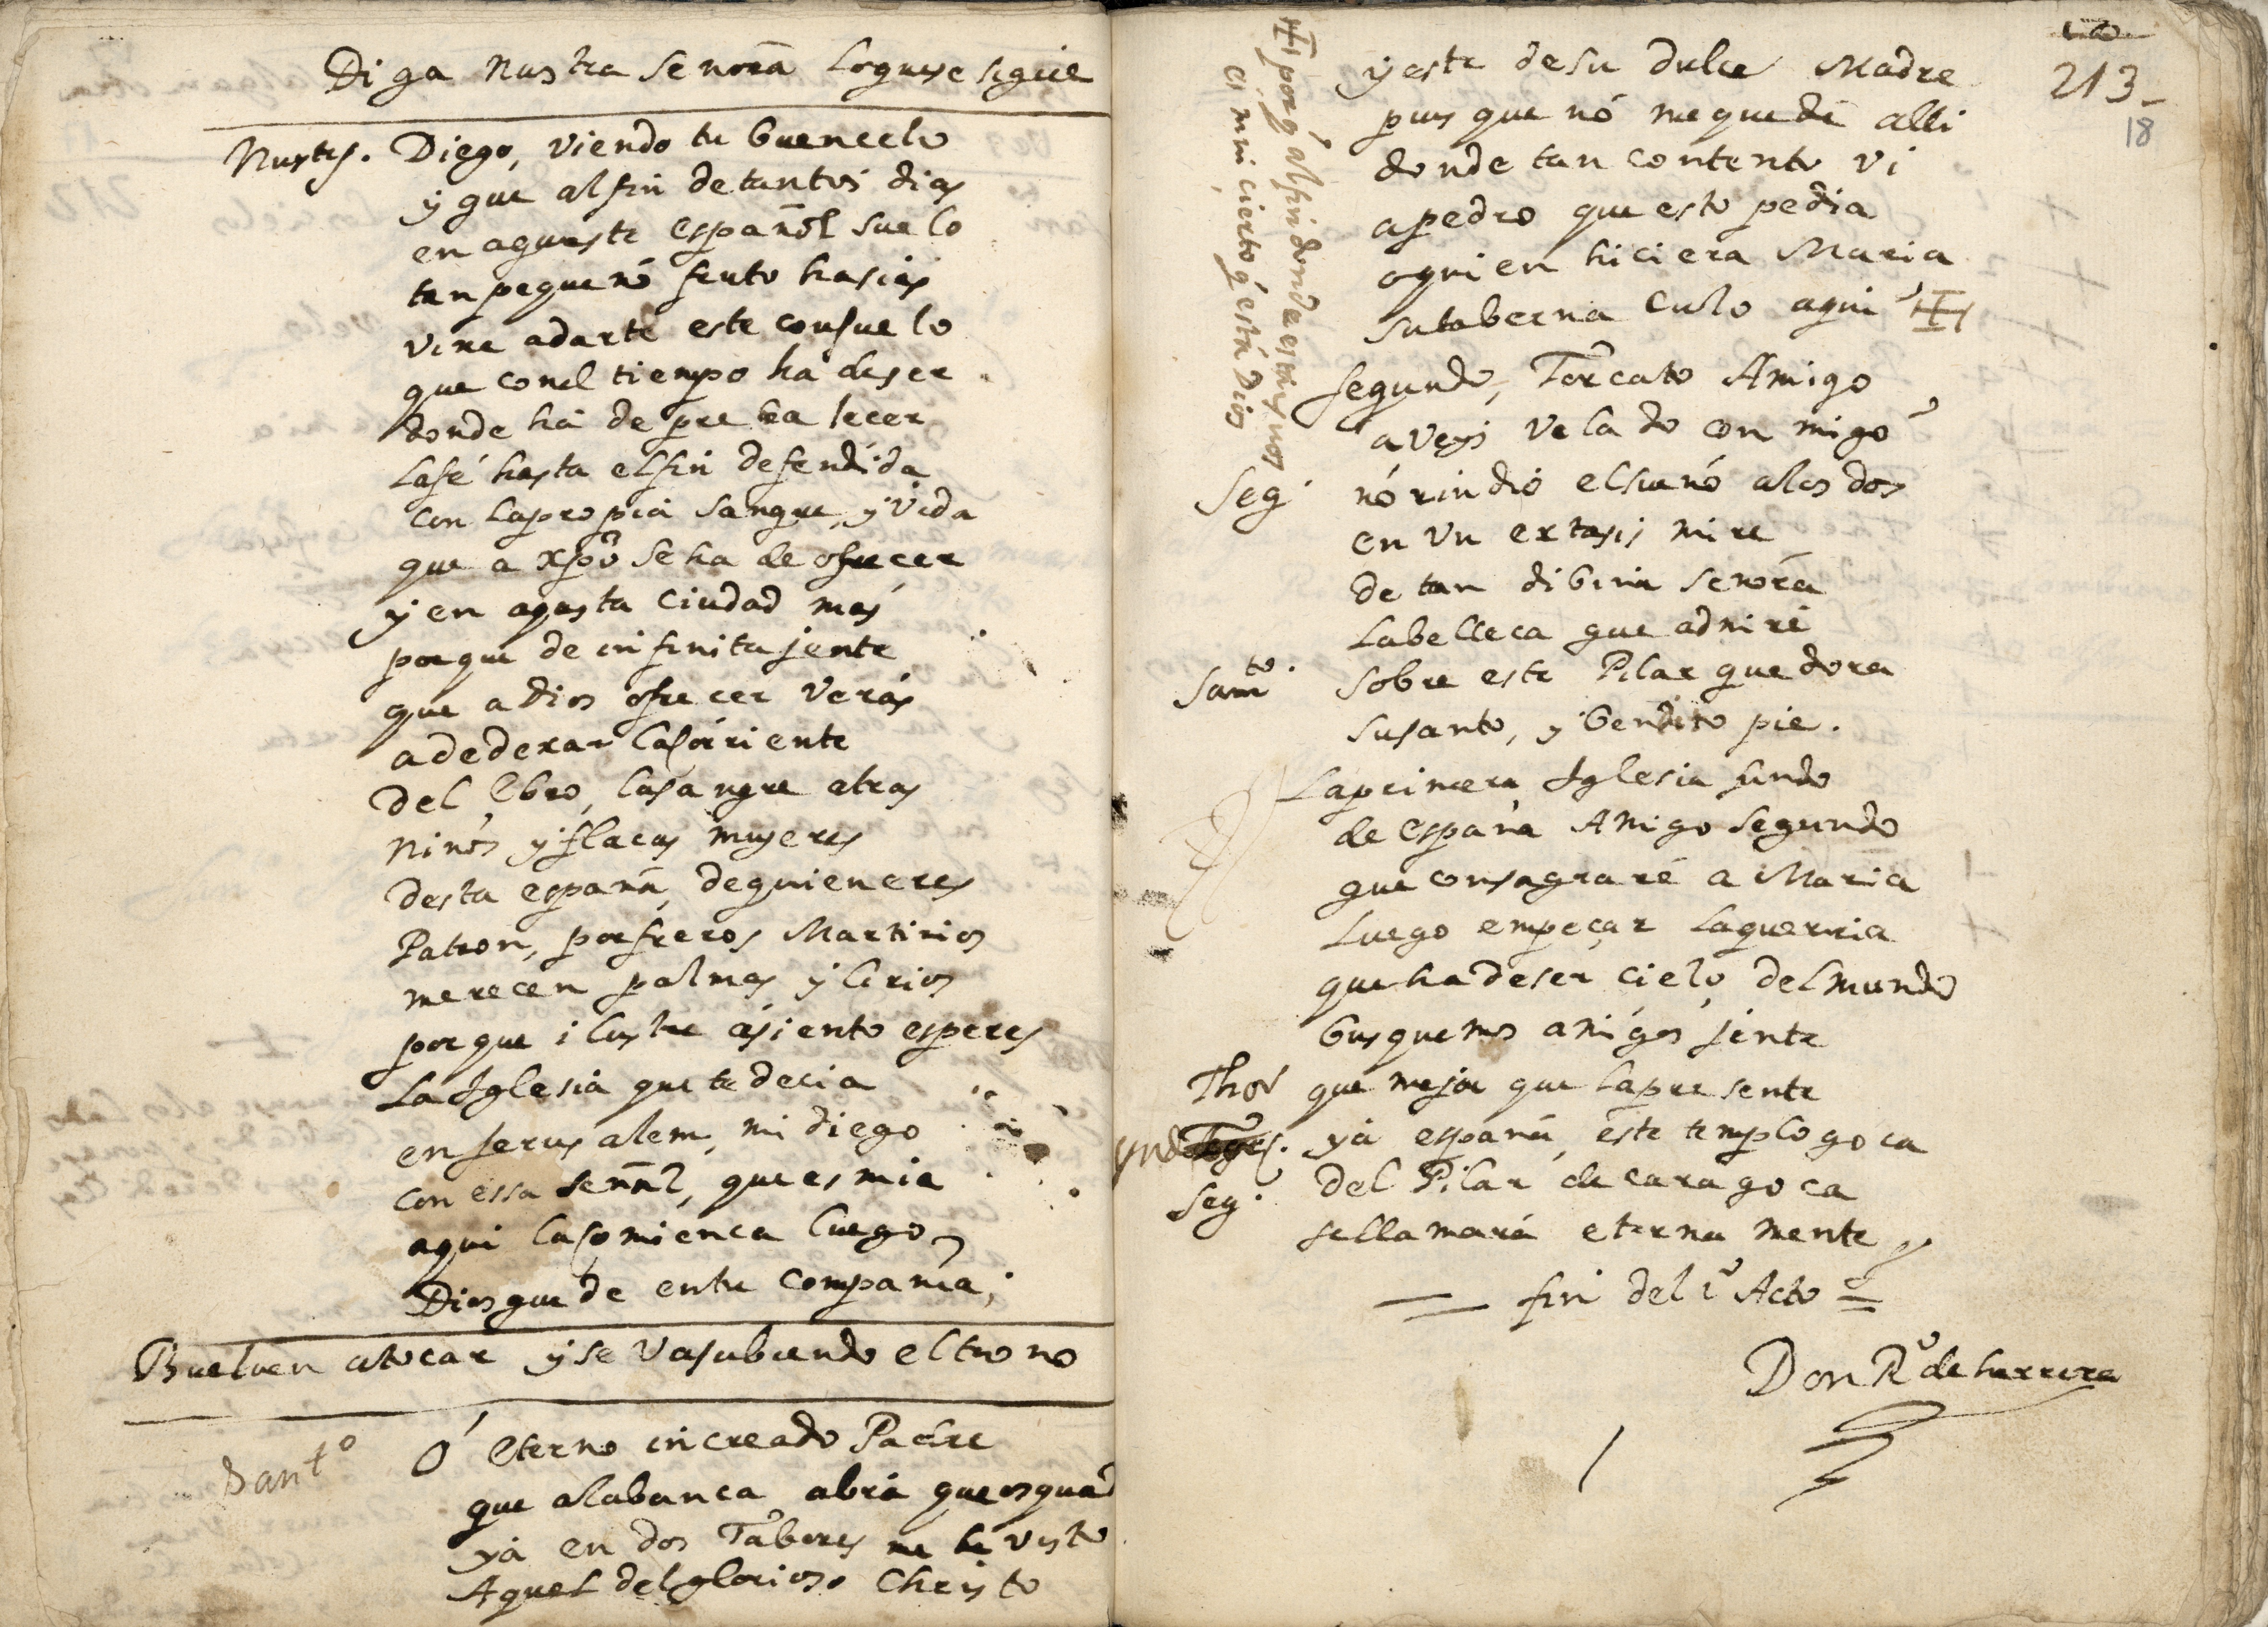 Diga nustra Senora loquese sigue
Nustrs. Diego, viendo tu buen celo
y que al fin de tantos dias
en aqueste español suelo
tan pequeño fruto hasias
vine adarte este consuelo
que con el tiempo ha de ser
donde ha de prebalecer
la fé hasta el fin defendida
con la propia sangre, y vida
que a xpõ se ha de ofrecer
y en aqesta ciudad mas
porque de infinita jente
que a Dios ofrecer verás
a de dexar la corriente
del Ebro, la sangre atras
niños y flacas mujeres
desta españa, de quien eres
Patron, por fieros Martirios
merecen palmas y lirios
porque ilustre asiento esperes
La Iglesia que te decia
en jerusalem, mi diego
con essa señal, que es mia
aqui la comienca luego,
Dios quede en tu compañia,
Buelven a tocar y se va subiendo el trono
Santo O eterno increado Padre
que alabanca abrá que os quad
ya en dos Tabores me he visto
Aquel del glorioso Christo
213_
18
y este de su dulce Madre
pues que nó me quedé alli
donde tan contento vi
a pedro que esto pedia
o quien hiciera Maria
su taberna culo aqui
porq̃ al fin donde estais vos
es mui cierto q̃ está Dios
segundo, Torcato Amigo
aveys velado con migo
Seg. nó rindió el sueño a los dos
en un extasis mire
de tan dibina señora
la belleca que admiré
Santo. Sobre este Pilar que dora
su santo, y bendito pie.
La primera Iglesia fundo
de españa Amigo segundo
que consagraré a Maria
luego empeçar la querria
que ha de ser cielo del mundo
busquemos amigos jente
Thor que mejor que la presente
ya españa, este templo goca
Seg. del Pilar de caragoca
se llamará eternamente
fin del 1º Acto
Don Rº de herrera